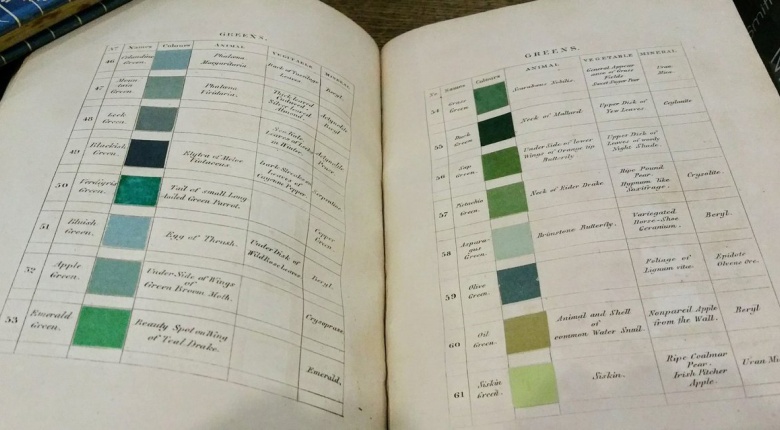 GREENS.
Nº Names Colours ANIMAL VEGETABLE MINERAL
46
Green.
Phalæna
Margaritaria
Beryl.
47
Green.
Phalæna
Viridaria.
48
Leek
Green.
Sea Kale
Leaves of Leeks
in Winter.
49
Blackish
Green.
Elytra of Meloe
Violaceus.
Dark Streaks on
Leaves of
Cayenne Pepper
Serpentine
50
Verdigris
Green.
Tail of small Long
tailed Green Parrot.
Copper
Green
51
Bluish
Green.
Egg of Thrush.
Under Disk of
Wild Rose Leaves
Beryl.
52
Apple
Green.
Under Side of Wings
of
Green Broom Moth.
Crysoprase
53
Emerald
Green.
Beauty Spot on Wing
of Teal Drake.
Emerald.
GREENS.
Nº Names Colours ANIMAL VEGETABLE MINERAL
54
Grass
Green.
Scarabæus Nobilis.
General Appear-
ance of Grass
Fields
Sweet Sugar Pear
Uran
Mica.
55
Duck
Green.
Neck of Mallard.
Upper Disk of
Yew Leaves.
Ceylanite
56
Sap
Green.
Under Side of lower
Wings of Orange tip
Butterfly.
Upper Disk of
Leaves of woody
Night Shade.
57
Pistachio
Green.
Neck of Eider Drake.
Ripe Pound
Pear
Hypnum like
Saxifrage.
Crysolite.
58
Aspara-
gus
Green.
Brimstone Butterfly.
Variegated
Horse-Shoe
Geranium.
Beryl.
59
Olive
Green.
Foliage of
Lignum vitæ.
Epidote
Olvene Ore.
60
Oil
Green.
Animal and Shell
of
common Water Snail.
Nonpareil Apple
from the Wall.
Beryl
61
Siskin
Green.
Siskin.
Ripe Coalmar
Pear.
Irish Pitcher
Apple.
Uran Mi